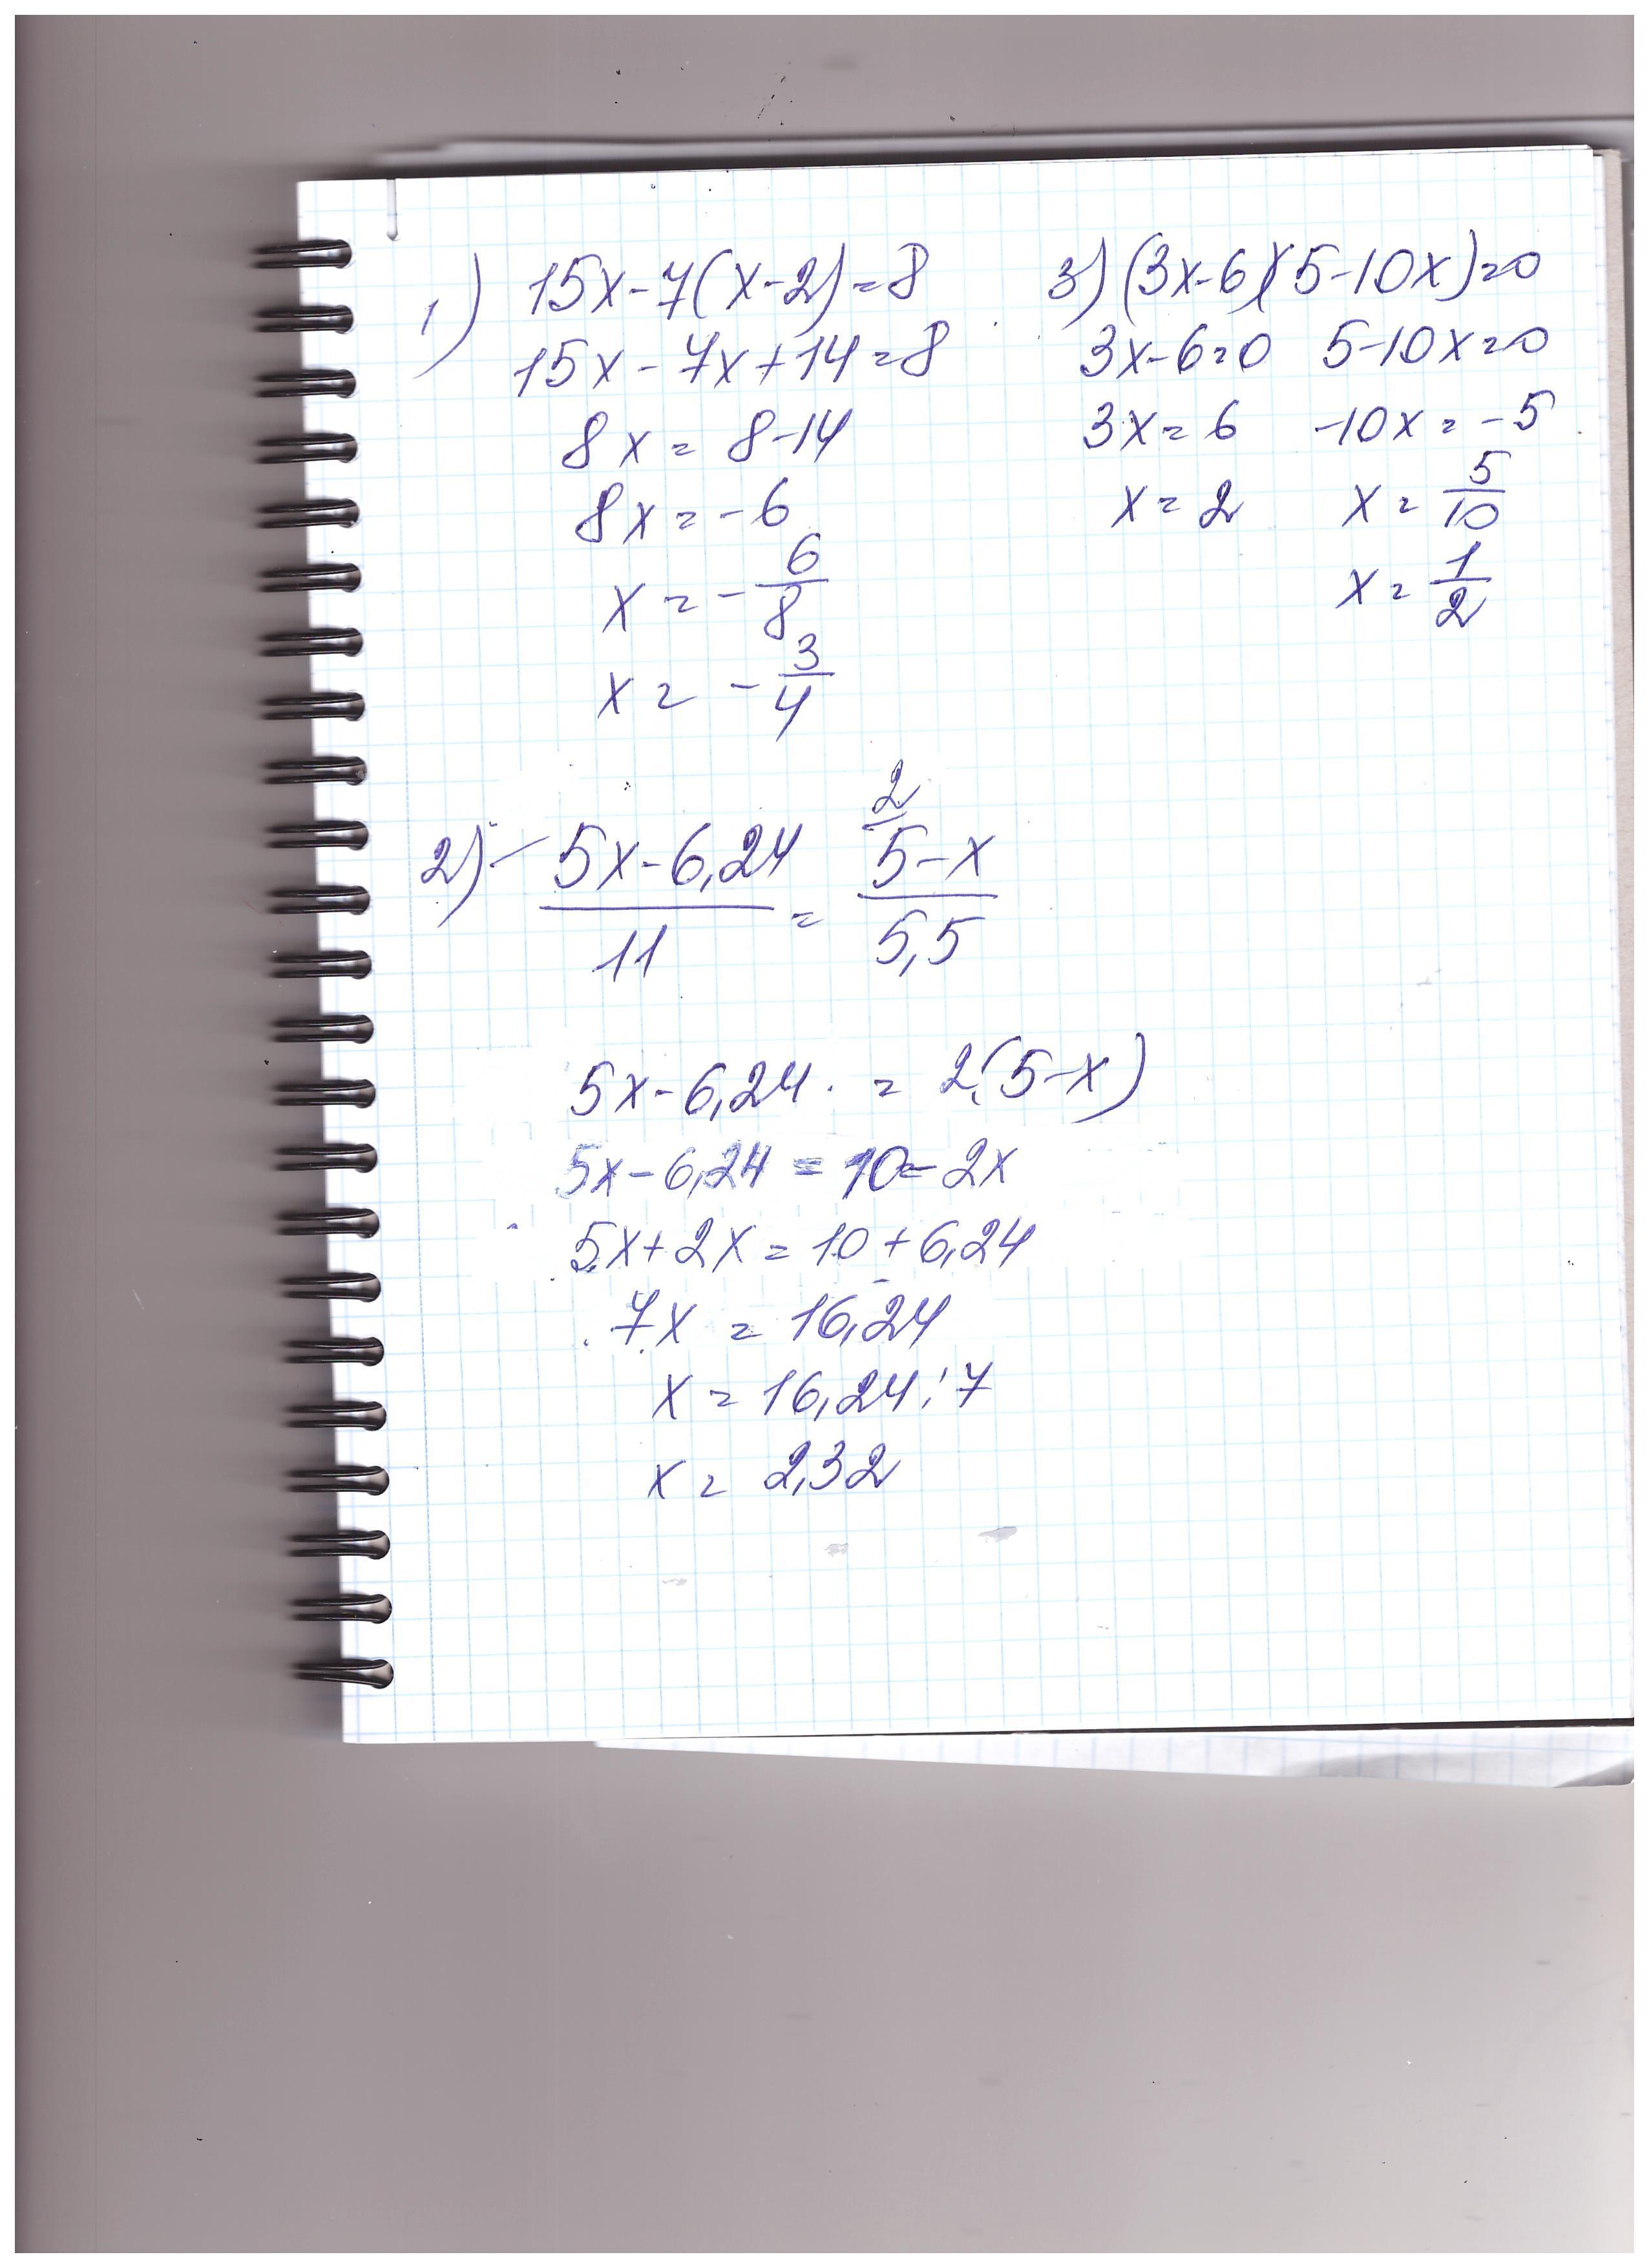 1) 15x-7(x-2)=8
15x-7x+14=8
8x=8-14
8x=-6
x=-6/8
x=-3/4
3) (3x-6)(5-10x)=0
3x-6=0 5-10x=0
3x=6 -10x=-5
x=2 x=5/10
x=1/2
2
2) - 5x-6,24 / 11 = 5-x / 5,5
5x-6,24 = 2(5-x)
5x-6,24=10-2x
5x+2x=10+6,24
7x=16,24
x=16,24:7
x=2,32